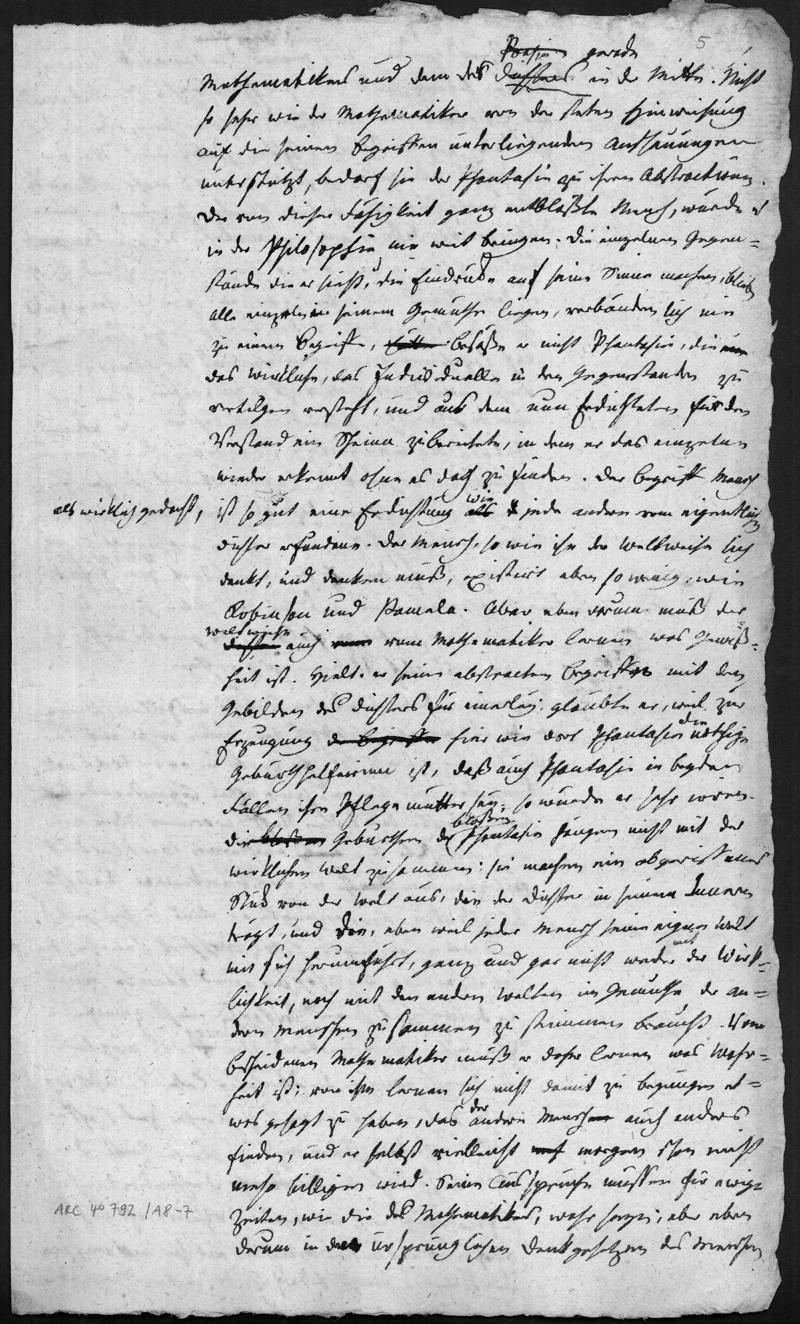 5
Poesie gerade
Mathematikers und dem des Dichters in der Mitte. Nicht
so sehr wie der Mathematiker von der steten Hinweisung
auf die seinen Begriffen unterliegenden Anschauungen
unterstützt, bedarf sie der Phantasie zu ihren Abstractionen.
Der von dieser Fähigkeit ganz entblößte Mensch, würde es
in der Philosophie nie weit bringen. Die einzelnen Gegen=
stände die er sieht, die Eindrücke auf seine Sinne machen, blieben
alle einzeln in seinem Gemüthe liegen, verbänden sich nie
zu einem Begriffe, hätte besäße er nicht Phantasie, die
das wirkliche, das Individuelle in den Gegenständen zu
vertilgen versteht, und aus dem nun Erdichteten für den
Verstand ein Schema zubereitete, in dem er das einzelne
wieder erkennt ohne es doch zu finden. Der Begriff Mensch
als wirklich gedacht,
ist so gut eine Erdichtung als wie jede andere vom eigentlichen
Dichter erfundene. Der Mensch, so wie ihn der Weltweise sich
denkt, und denken muß, existirt eben so wenig, wie
Robinson und Pamela. Aber eben darum muß der
Weltweise
auch vom Mathematiker lernen was Gewiß=
heit ist. Hielt er seine abstracten Begriffe mit den
Gebilden des Dichters für einerley: glaubte er, weil zur
Erzeugung der Begriffe hier wie dort Phantasie die nöthige
Geburtshelferinn ist, daß auch Phantasie in beyden
Fällen ihre Pflegemutter sey; so würde er sehr irren.
Die blossen Geburthen der bloßen Phantasie hängen nicht mit der
wirklichen Welt zusammen: sie machen ein abgerissenes
Stück von der Welt aus, die der Dichter in seinem Innern
trägt, und die, eben weil jeder Mensch seine eigne Welt
mit sich herumführt, ganz und gar nicht weder mit der Wirk=
lichkeit, noch mit den andern Welten im Gemüthe der an=
dern Menschen zusammen zu stimmen braucht. Vom
bescheidenen Mathematiker muß er daher lernen was Wahr=
heit ist; von ihm lernen sich nicht damit zu begnügen et=
was gesagt zu haben, das der andere Mensch auch anders
finden, und er selbst vielleicht morgen schon nicht
mehr billigen wird. Seine Aussprüche müssen für ewige
Zeiten, wie die des Mathematikers, wahr seyn; aber eben
darum in den ursprünglichen Denkgesetzen des Menschen
ARC 4° 792 /A8-7